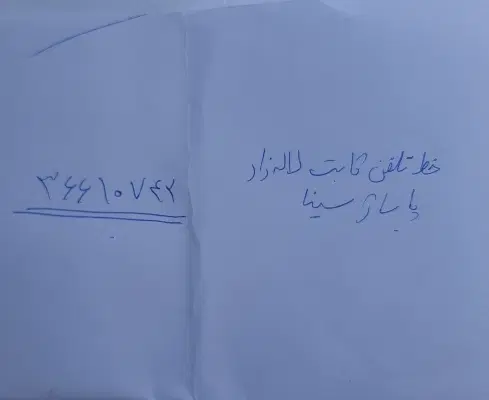 خط تلفن ثابت لاله زار
پاساژ سینا
۳۶۶۱۰۷۴۲